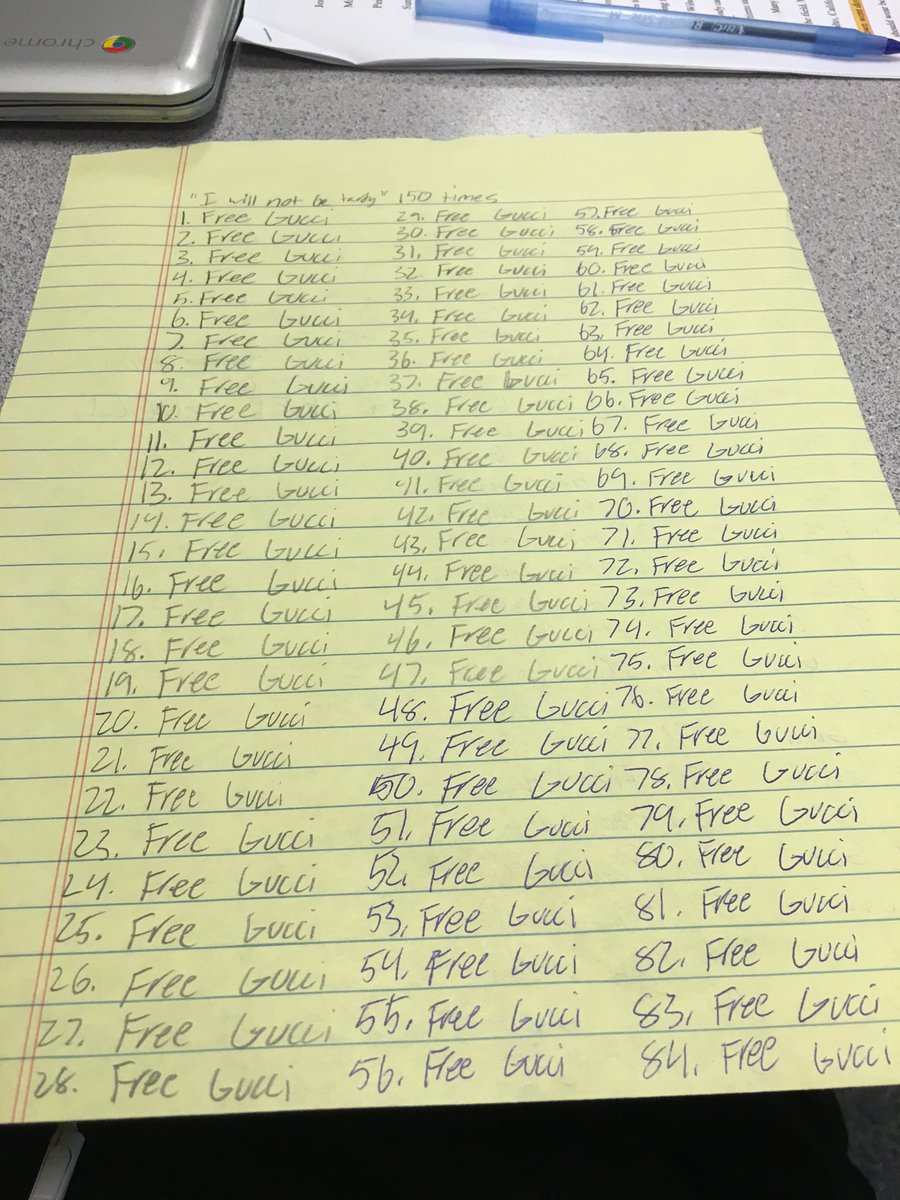 chrome
BIC
"I will not be tardy" 150 times
1. Free Gucci
2. Free Gucci
3. Free Gucci
4. Free Gucci
5. Free Gucci
6. Free Gucci
7. Free Gucci
8. Free Gucci
9. Free Gucci
10. Free Gucci
11. Free Gucci
12. Free Gucci
13. Free Gucci
14. Free Gucci
15. Free Gucci
16. Free Gucci
17. Free Gucci
18. Free Gucci
19. Free Gucci
20. Free Gucci
21. Free Gucci
22. Free Gucci
23. Free Gucci
24. Free Gucci
25. Free Gucci
26. Free Gucci
27. Free Gucci
28. Free Gucci
29. Free Gucci
30. Free Gucci
31. Free Gucci
32. Free Gucci
33. Free Gucci
34. Free Gucci
35. Free Gucci
36. Free Gucci
37. Free Gucci
38. Free Gucci
39. Free Gucci
40. Free Gucci
41. Free Gucci
42. Free Gucci
43. Free Gucci
44. Free Gucci
45. Free Gucci
46. Free Gucci
47. Free Gucci
48. Free Gucci
49. Free Gucci
50. Free Gucci
51. Free Gucci
52. Free Gucci
53. Free Gucci
54. Free Gucci
55. Free Gucci
56. Free Gucci
57. Free Gucci
58. Free Gucci
59. Free Gucci
60. Free Gucci
61. Free Gucci
62. Free Gucci
63. Free Gucci
64. Free Gucci
65. Free Gucci
66. Free Gucci
67. Free Gucci
68. Free Gucci
69. Free Gucci
70. Free Gucci
71. Free Gucci
72. Free Gucci
73. Free Gucci
74. Free Gucci
75. Free Gucci
76. Free Gucci
77. Free Gucci
78. Free Gucci
79. Free Gucci
80. Free Gucci
81. Free Gucci
82. Free Gucci
83. Free Gucci
84. Free Gucci